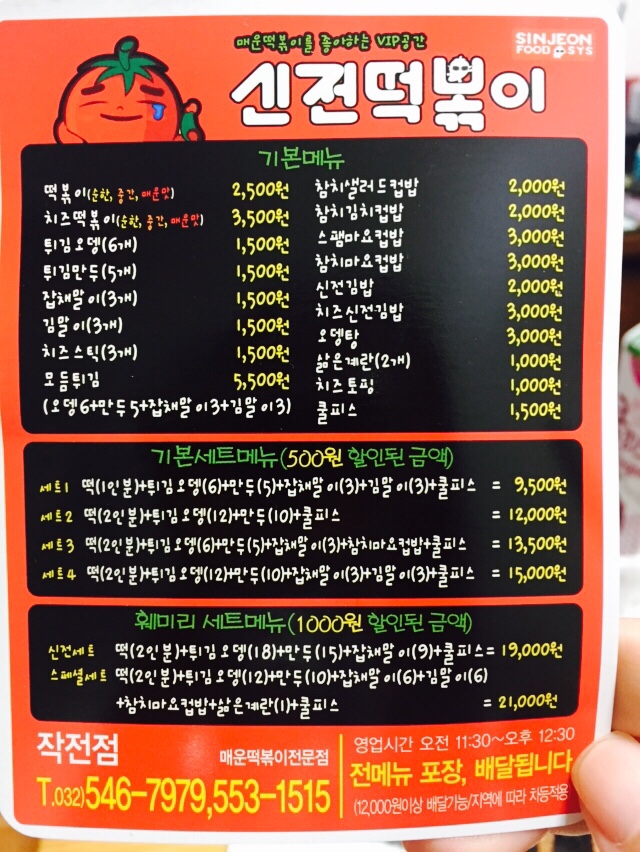 매운떡볶이를 좋아하는 VIP공간
SINJEON
FOOD SYS
신전떡볶이
기본메뉴
떡볶이(순한, 중간, 매운맛) 2,500원
치즈떡볶이(순한, 중간, 매운맛) 3,500원
튀김오뎅(6개) 1,500원
튀김만두(5개) 1,500원
잡채말이(3개) 1,500원
김말이(3개) 1,500원
치즈스틱(3개) 1,500원
모듬튀김 5,500원
(오뎅6+만두5+잡채말이3+김말이3)
참치샐러드컵밥 2,000원
참치김치컵밥 2,000원
스팸마요컵밥 3,000원
참치마요컵밥 3,000원
신전김밥 2,000원
치즈신전김밥 3,000원
오뎅탕 3,000원
삶은계란(2개) 1,000원
치즈토핑 1,000원
쿨피스 1,500원
기본세트메뉴(500원 할인된 금액)
세트1 떡(1인분)+튀김오뎅(6)+만두(5)+잡채말이(3)+김말이(3)+쿨피스 = 9,500원
세트2 떡(2인분)+튀김오뎅(12)+만두(10)+쿨피스 = 12,000원
세트3 떡(2인분)+튀김오뎅(6)+만두(5)+잡채말이(3)+참치마요컵밥+쿨피스 = 13,500원
세트4 떡(2인분)+튀김오뎅(12)+만두(10)+잡채말이(3)+김말이(3)+쿨피스 = 15,000원
훼미리 세트메뉴(1000원 할인된 금액)
신전세트 떡(2인분)+튀김오뎅(18)+만두(15)+잡채말이(9)+쿨피스= 19,000원
스페셜세트 떡(2인분)+튀김오뎅(12)+만두(10)+잡채말이(6)+김말이(6)
+참치마요컵밥+삶은계란(1)+쿨피스 = 21,000원
작전점 매운떡볶이전문점
T.032)546-7979,553-1515
영업시간 오전 11:30~오후 12:30
전메뉴 포장, 배달됩니다
(12,000원이상 배달가능/지역에 따라 차등적용